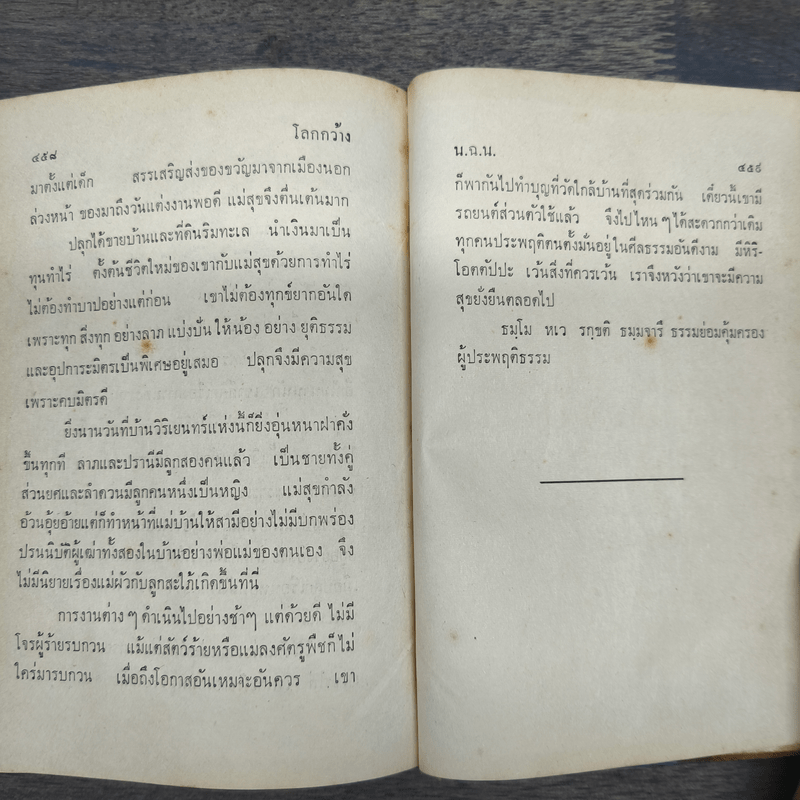 ๔๕๘
โลกกว้าง
มาตั้งแต่เด็ก สรรเสริญส่งของขวัญมาจากเมืองนอก
ล่วงหน้า ของมาถึงวันแต่งงานพอดี แม่สุขจึงตื่นเต้นมาก
ปลุกได้ขายบ้านและที่ดินริมทะเล นำเงินมาเป็น
ทุนทำไร่ ตั้งต้นชีวิตใหม่ของเขากับแม่สุขด้วยการทำไร่
ไม่ต้องทำบาปอย่างแต่ก่อน เขาไม่ต้องทุกข์ยากอันใด
เพราะทุก สิ่งทุก อย่างลาภ แบ่งปัน ให้น้อง อย่าง ยุติธรรม
และอุปการะมิตรเป็นพิเศษอยู่เสมอ ปลุกจึงมีความสุข
เพราะคบมิตรดี
ยิ่งนานวันที่บ้านวิริเยนทร์แห่งนี้ก็ยิ่งอุ่นหนาฝาคั่ง
ขึ้นทุกที ลาภและปรานีมีลูกสองคนแล้ว เป็นชายทั้งคู่
ส่วนยศและลำดวนมีลูกคนหนึ่งเป็นหญิง แม่สุขกำลัง
อ้วนอุ้ยอ้ายแต่ก็ทำหน้าที่แม่บ้านให้สามีอย่างไม่มีบกพร่อง
ปรนนิบัติผู้เฒ่าทั้งสองในบ้านอย่างพ่อแม่ของตนเอง จึง
ไม่มีนิยายเรื่องแม่ผัวกับลูกสะใภ้เกิดขึ้นที่นี่
การงานต่าง ๆ ดำเนินไปอย่างช้าๆ แต่ด้วยดี ไม่มี
โจรผู้ร้ายรบกวน แม้แต่สัตว์ร้ายหรือแมลงศัตรูพืชก็ไม่
ใคร่มารบกวน เมื่อถึงโอกาสอันเหมาะอันควร เขา
น.ฉ.น.
๔๕๙
ก็พากันไปทำบุญที่วัดใกล้บ้านที่สุดร่วมกัน เดี๋ยวนี้เขามี
รถยนต์ส่วนตัวใช้แล้ว จึงไปไหน ๆ ได้สะดวกกว่าเดิม
ทุกคนประพฤติตนตั้งมั่นอยู่ในศีลธรรมอันดีงาม มีหิริ-
โอตตัปปะ เว้นสิ่งที่ควรเว้น เราจึงหวังว่าเขาจะมีความ
สุขยั่งยืนตลอดไป
ธมฺโม หเว รกฺขติ ธมฺมจารึ ธรรมย่อมคุ้มครอง
ผู้ประพฤติธรรม